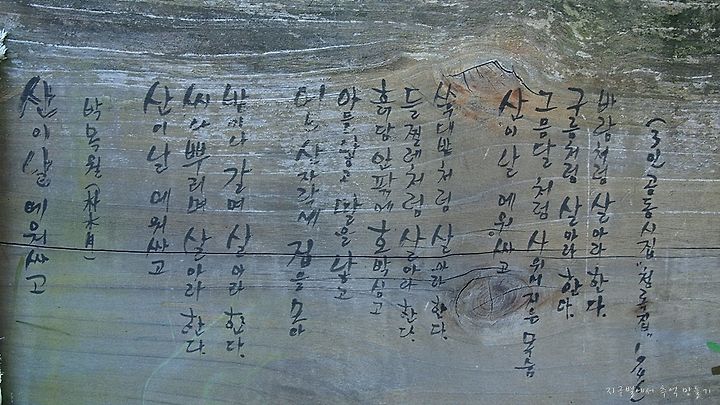 산이 날 에워싸고
박목월(朴木月)
산이 날 에워싸고
씨나 뿌리며 살아라 한다.
밭이나 갈며 살아라 한다.
어느 산자락에 집을 모아
아들 낳고 딸을 낳고
흙담 안팎에 호박 심고
들찔레처럼 살아라 한다.
쑥대밭처럼 살아라 한다.
산이 날 에워싸고
그믐달처럼 사위어지는 목숨
구름처럼 살아라 한다.
바람처럼 살아라 한다.
(3인 공동시집 "청록집"
지구별에서 추억 만들기